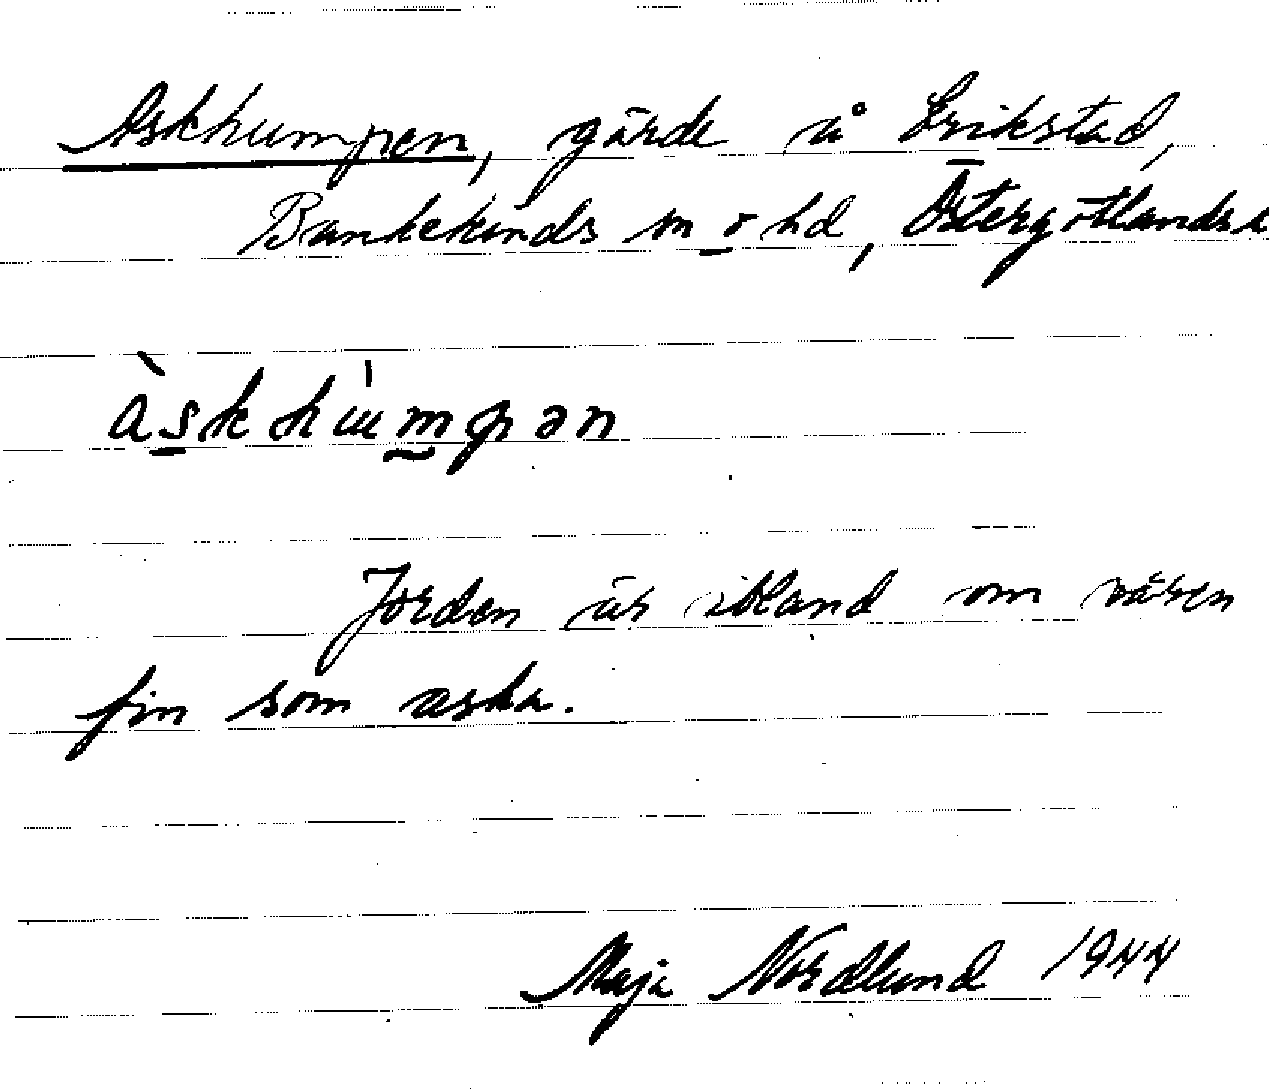 Askhumpen, gärde å Erikstad,
Bankekinds sn o hd, Östergötlands
àskhu̇mpən
Jorden är ibland om våren
fin som aska.
Maja Nordlund 1944